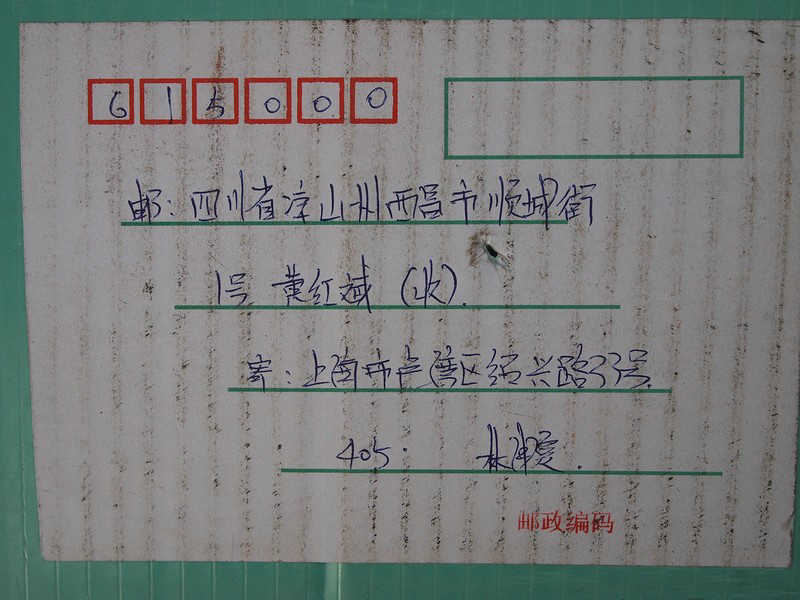 615000
邮：四川省凉山州西昌市顺城街
1号 黄红斌（收）.
寄：上海市卢湾区绍兴路33号.
405. 林
邮政编码